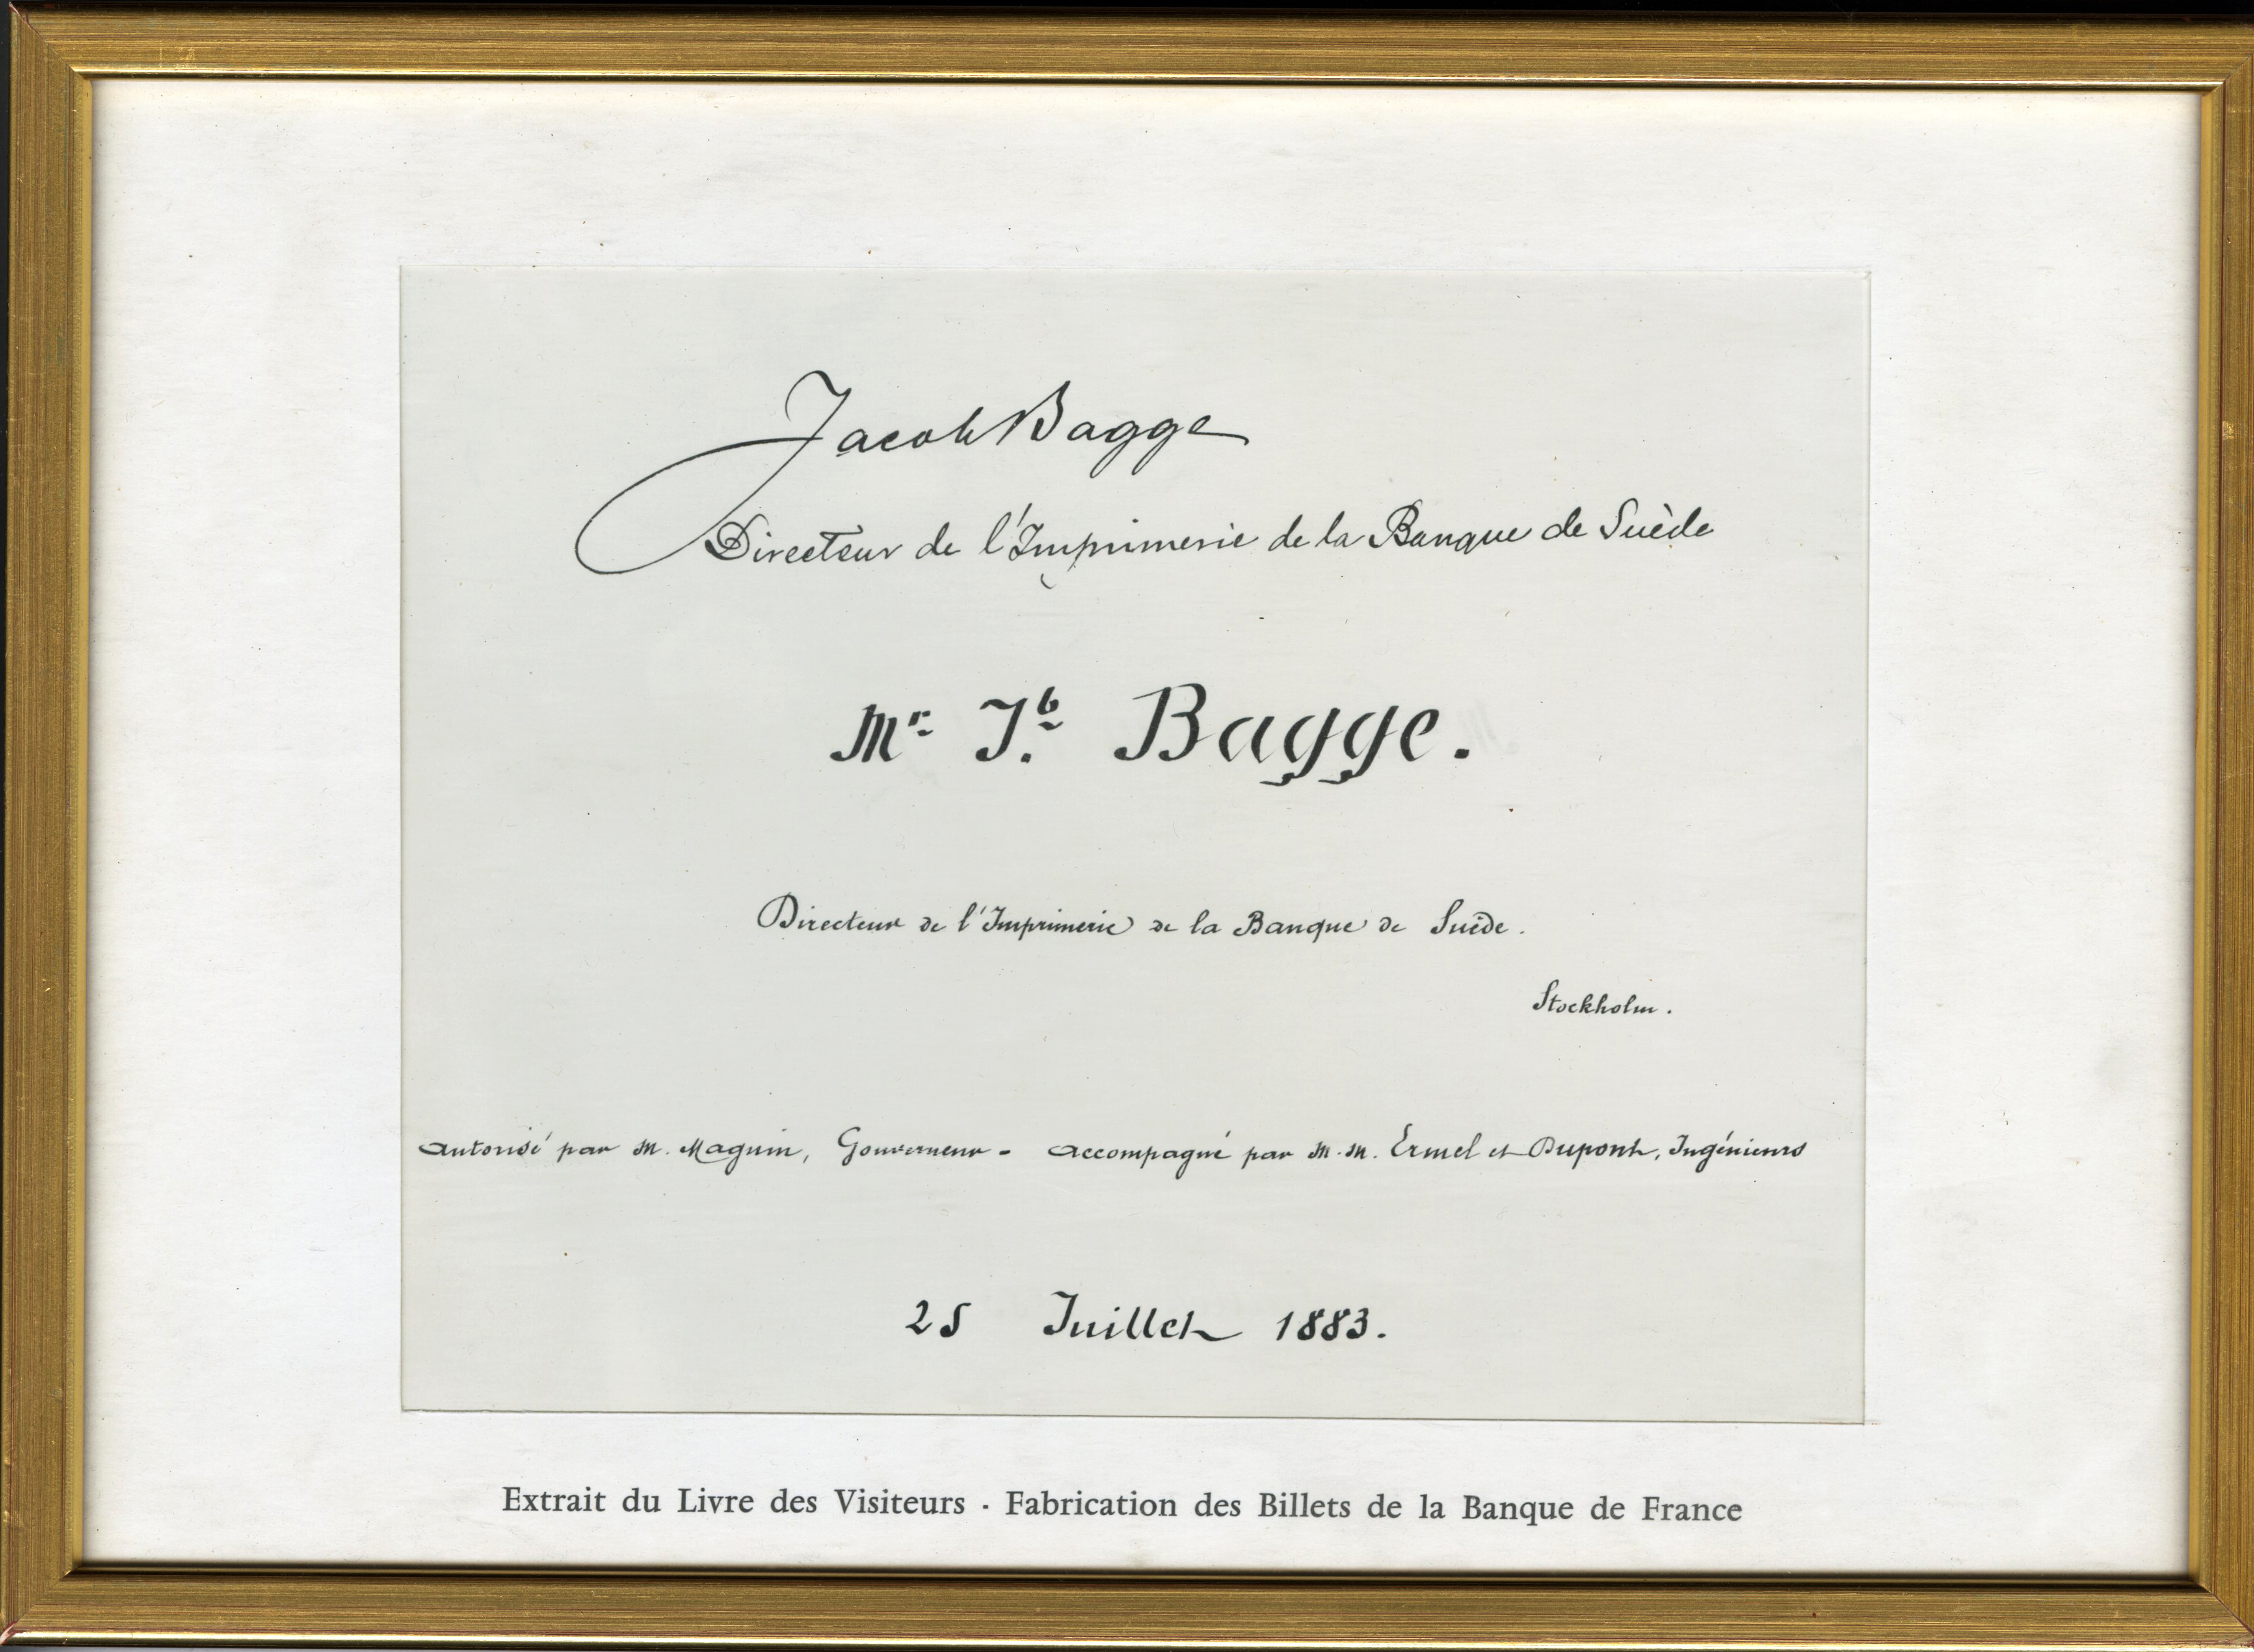 Jacob Bagge
Directeur de l'Imprimerie de la Banque de Suède
Mr. J.b Bagge.
Directeur de l'Imprimerie de la Banque de Suède.
Stockholm.
Autorisé par M. Magnin, Gouverneur - accompagné par M.M. Ermel et Dupont, Ingénieurs
25 Juillet 1883.
Extrait du Livre des Visiteurs - Fabrication des Billets de la Banque de France